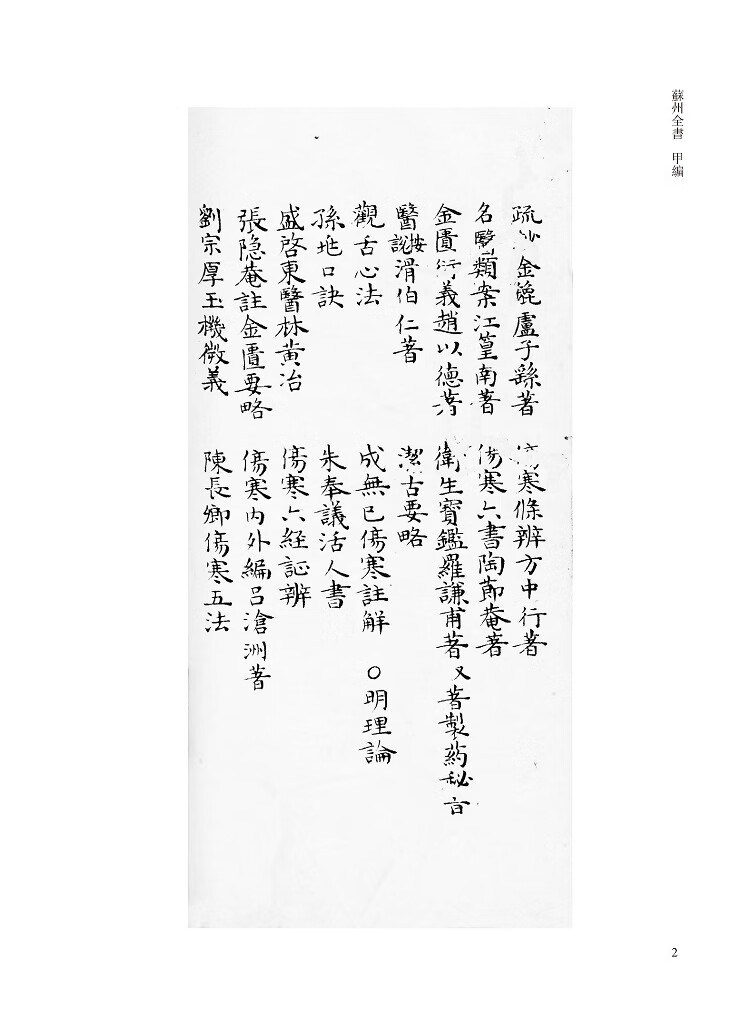 蘇州全書 甲編
疏 金 盧子繇著
寒條辨方中行著
名醫類案江篁南著
傷寒六書陶節菴著
金匱衍義趙以德著
衛生寶鑑羅謙甫著又著製葯秘
醫說按滑伯仁著
潔古要略
觀舌心法
成無已傷寒註解 〇明理論
孫 口訣
朱奉議活人書
盛啓東醫林黄冶
傷寒六経証辨
張隐菴註金匱要略
傷寒内外編呂滄洲著
劉宗厚玉機微義
陳長卿傷寒五法
2